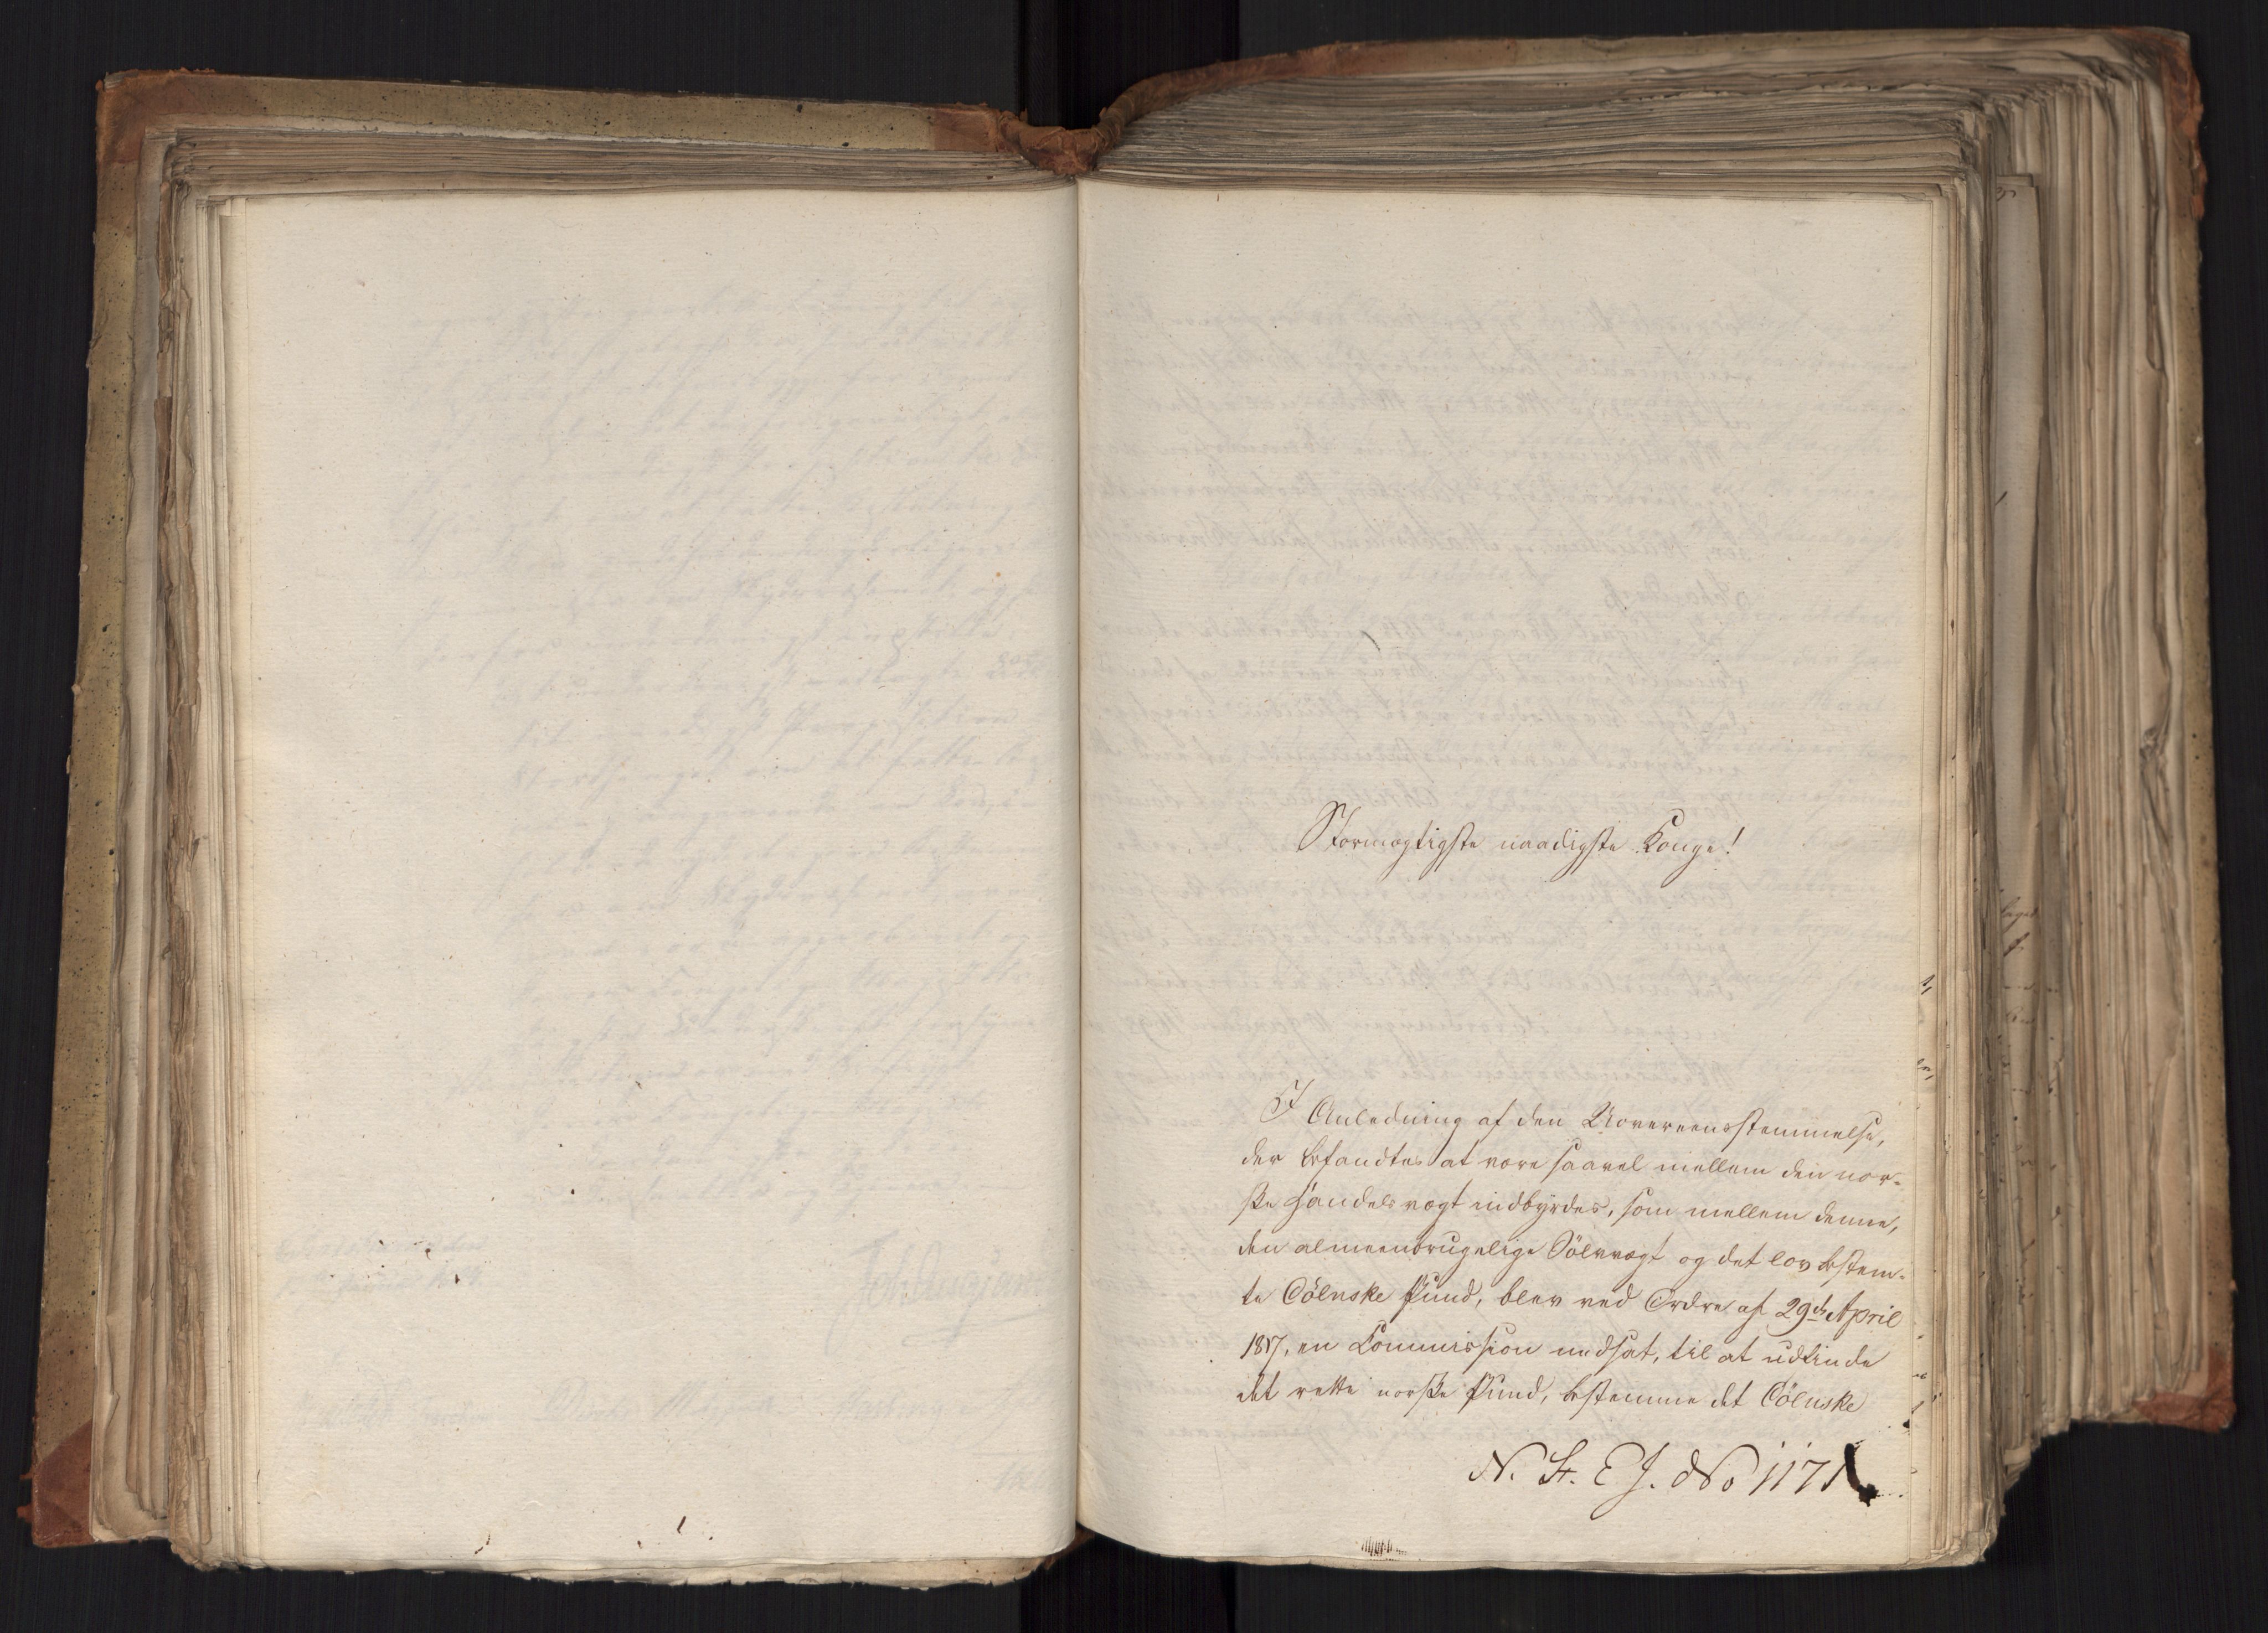 Stormægtigste naadigste Konge!
I Anledning af den Uovereensstemmelse,
der befandtes at være saavel mellem den nor-
ske Handelsvægt indbyrdes, som mellem denne,
den almeenbrugelige Sölvvægt og det lovbestem-
te Cölnske Pund, blev ved Ordre af 29de April
1817, en Commission nedsat, til at udfinde
det rette norske Pund, bestemme det Cölnske
N. St. E J. No 1171